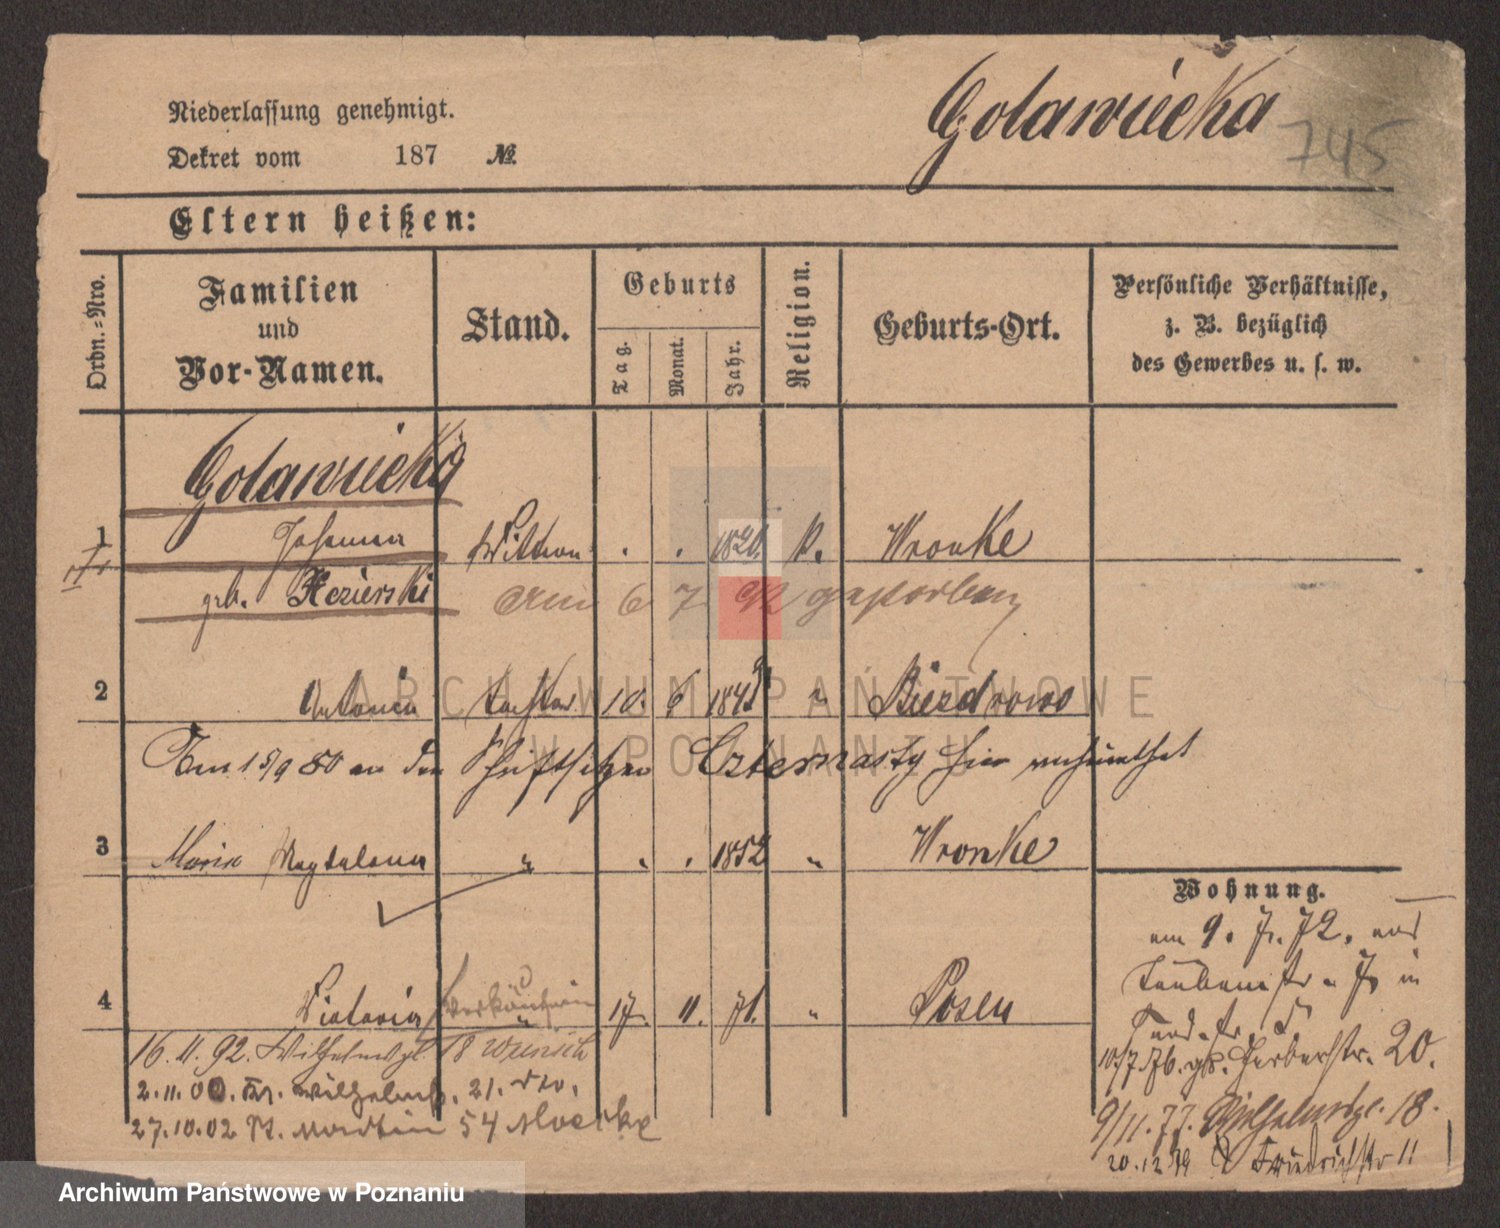 Golawiecka
745
Niederlassung genehmigt.
Dekret vom 187 №
Eltern heißen:
Ordn.=Nro.
Familien
und
Vor-Namen.
Stand.
Geburts
Tag.
Monat.
Jahr.
Religion.
Geburts-Ort.
Persönliche Verhältnisse,
z. B. bezüglich
des Gewerbes u. s. w.
Golawiecka
1 Johanna Wittwe 1820. k. Wronke
geb. Kezierski am 6 7 92 gestorben
2 Antonia Tochter 10. 6 184 " Biezdrowo
Am 15/9 80 an den Czternasty hier verheirathet
3 Maria Magdalena " 1852 " Wronke
4 Victoria Verkäuferin 17. 11. 71. " Posen
16. 11. 92. Wilhelmspl 18 Wunsch
2. 11. 00. Kl. 21.
27. 10. 02 St. Martin 54
Wohnung.
am 9. 7. 72. aus
Taubenstr. 7 in
10/7. 76. gr. Gerberstr. 20.
9/11. 77. Wilhelmspl. 18.
20. 12 79 Friedrichstr 11
ARCHIWUM PAŃSTWOWE
W POZNANIU
Archiwum Państwowe w Poznaniu